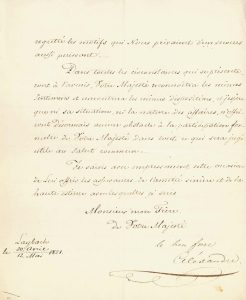 regretté les motifs qui Nous privaient d'un succès
aussi puissant.
Dans toutes les circonstances qui se présenteront
à l'avenir, Votre Majesté reconnaîtra les mêmes
sentimens et rencontrera les mêmes dispositions, j'espère
que ni sa situation, ni la nature des affaires, n'offri-
ront désormais aucun obstacle à la participation for-
melle de Votre Majesté dans tout ce qui sera jugé
utile au salut commun.
Je saisis avec empressement cette occasion
de Lui offrir les assurances de l'amitié sincère et de la
haute estime avec lesquelles je suis
Monsieur mon Frère,
de Votre Majesté
le bon frère
Alexandre
Laybach
le 30 Avril 1821.
12 Mai